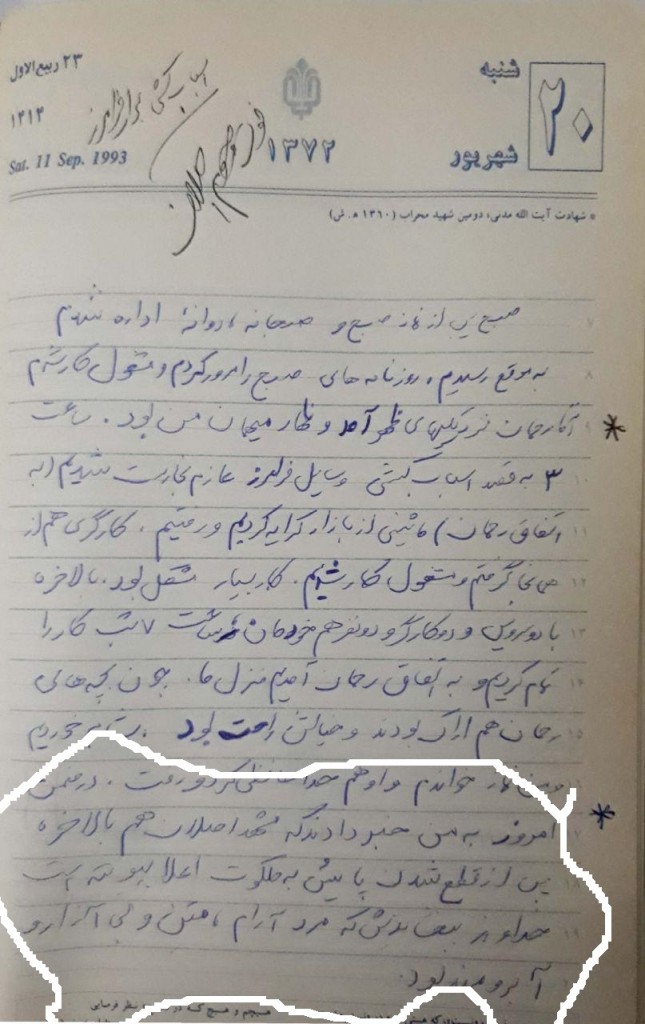 شنبه
۲۰
شهریور
۱۳۷۲
۲۳ ربیع‌الاول
۱۴۱۴
Sat. 11 Sep. 1993
اسباب کشی فرامرز
فوت مرحوم اصلان
* شهادت آیت الله مدنی، دومین شهید محراب (۱۳۶۰ ه. ش)
صبح پس از نماز صبح و صبحانه روانهٔ اداره شدم
به موقع رسیدم، روزنامه های صبح را مرور کردم و مشغول کار شدم
آقا رحمان نزدیکیهای ظهر آمد و ناهار میهمان من بود. ساعت
۳ به قصد اسباب کشی وسایل فرامرز عازم تجارت شدیم (به
اتفاق رحمان) ماشینی از بازار کرایه کردیم و رفتیم. کارگری هم از
همانجا گرفتم و مشغول کار شدیم. کار بسیار مشکل بود. بالاخره
با دو سرویس و دو کارگر و دو نفر هم خودمان ساعت ۷ شب کار را
تمام کردیم و به اتفاق رحمان آمدیم منزل ما. چون بچه های
رحمان هم اراک بودند و خیالش راحت بود. خوردیم
و من نماز خواندم و او هم خداحافظی کرد و رفت. در ضمن
امروز به من خبر دادند که اصلان هم بالاخره
پس از قطع شدن پایش به ملکوت اعلا پیوسته است
خداوند بیامرزدش که مرد آرام، متین و بی آزار و
آبرومند بود.